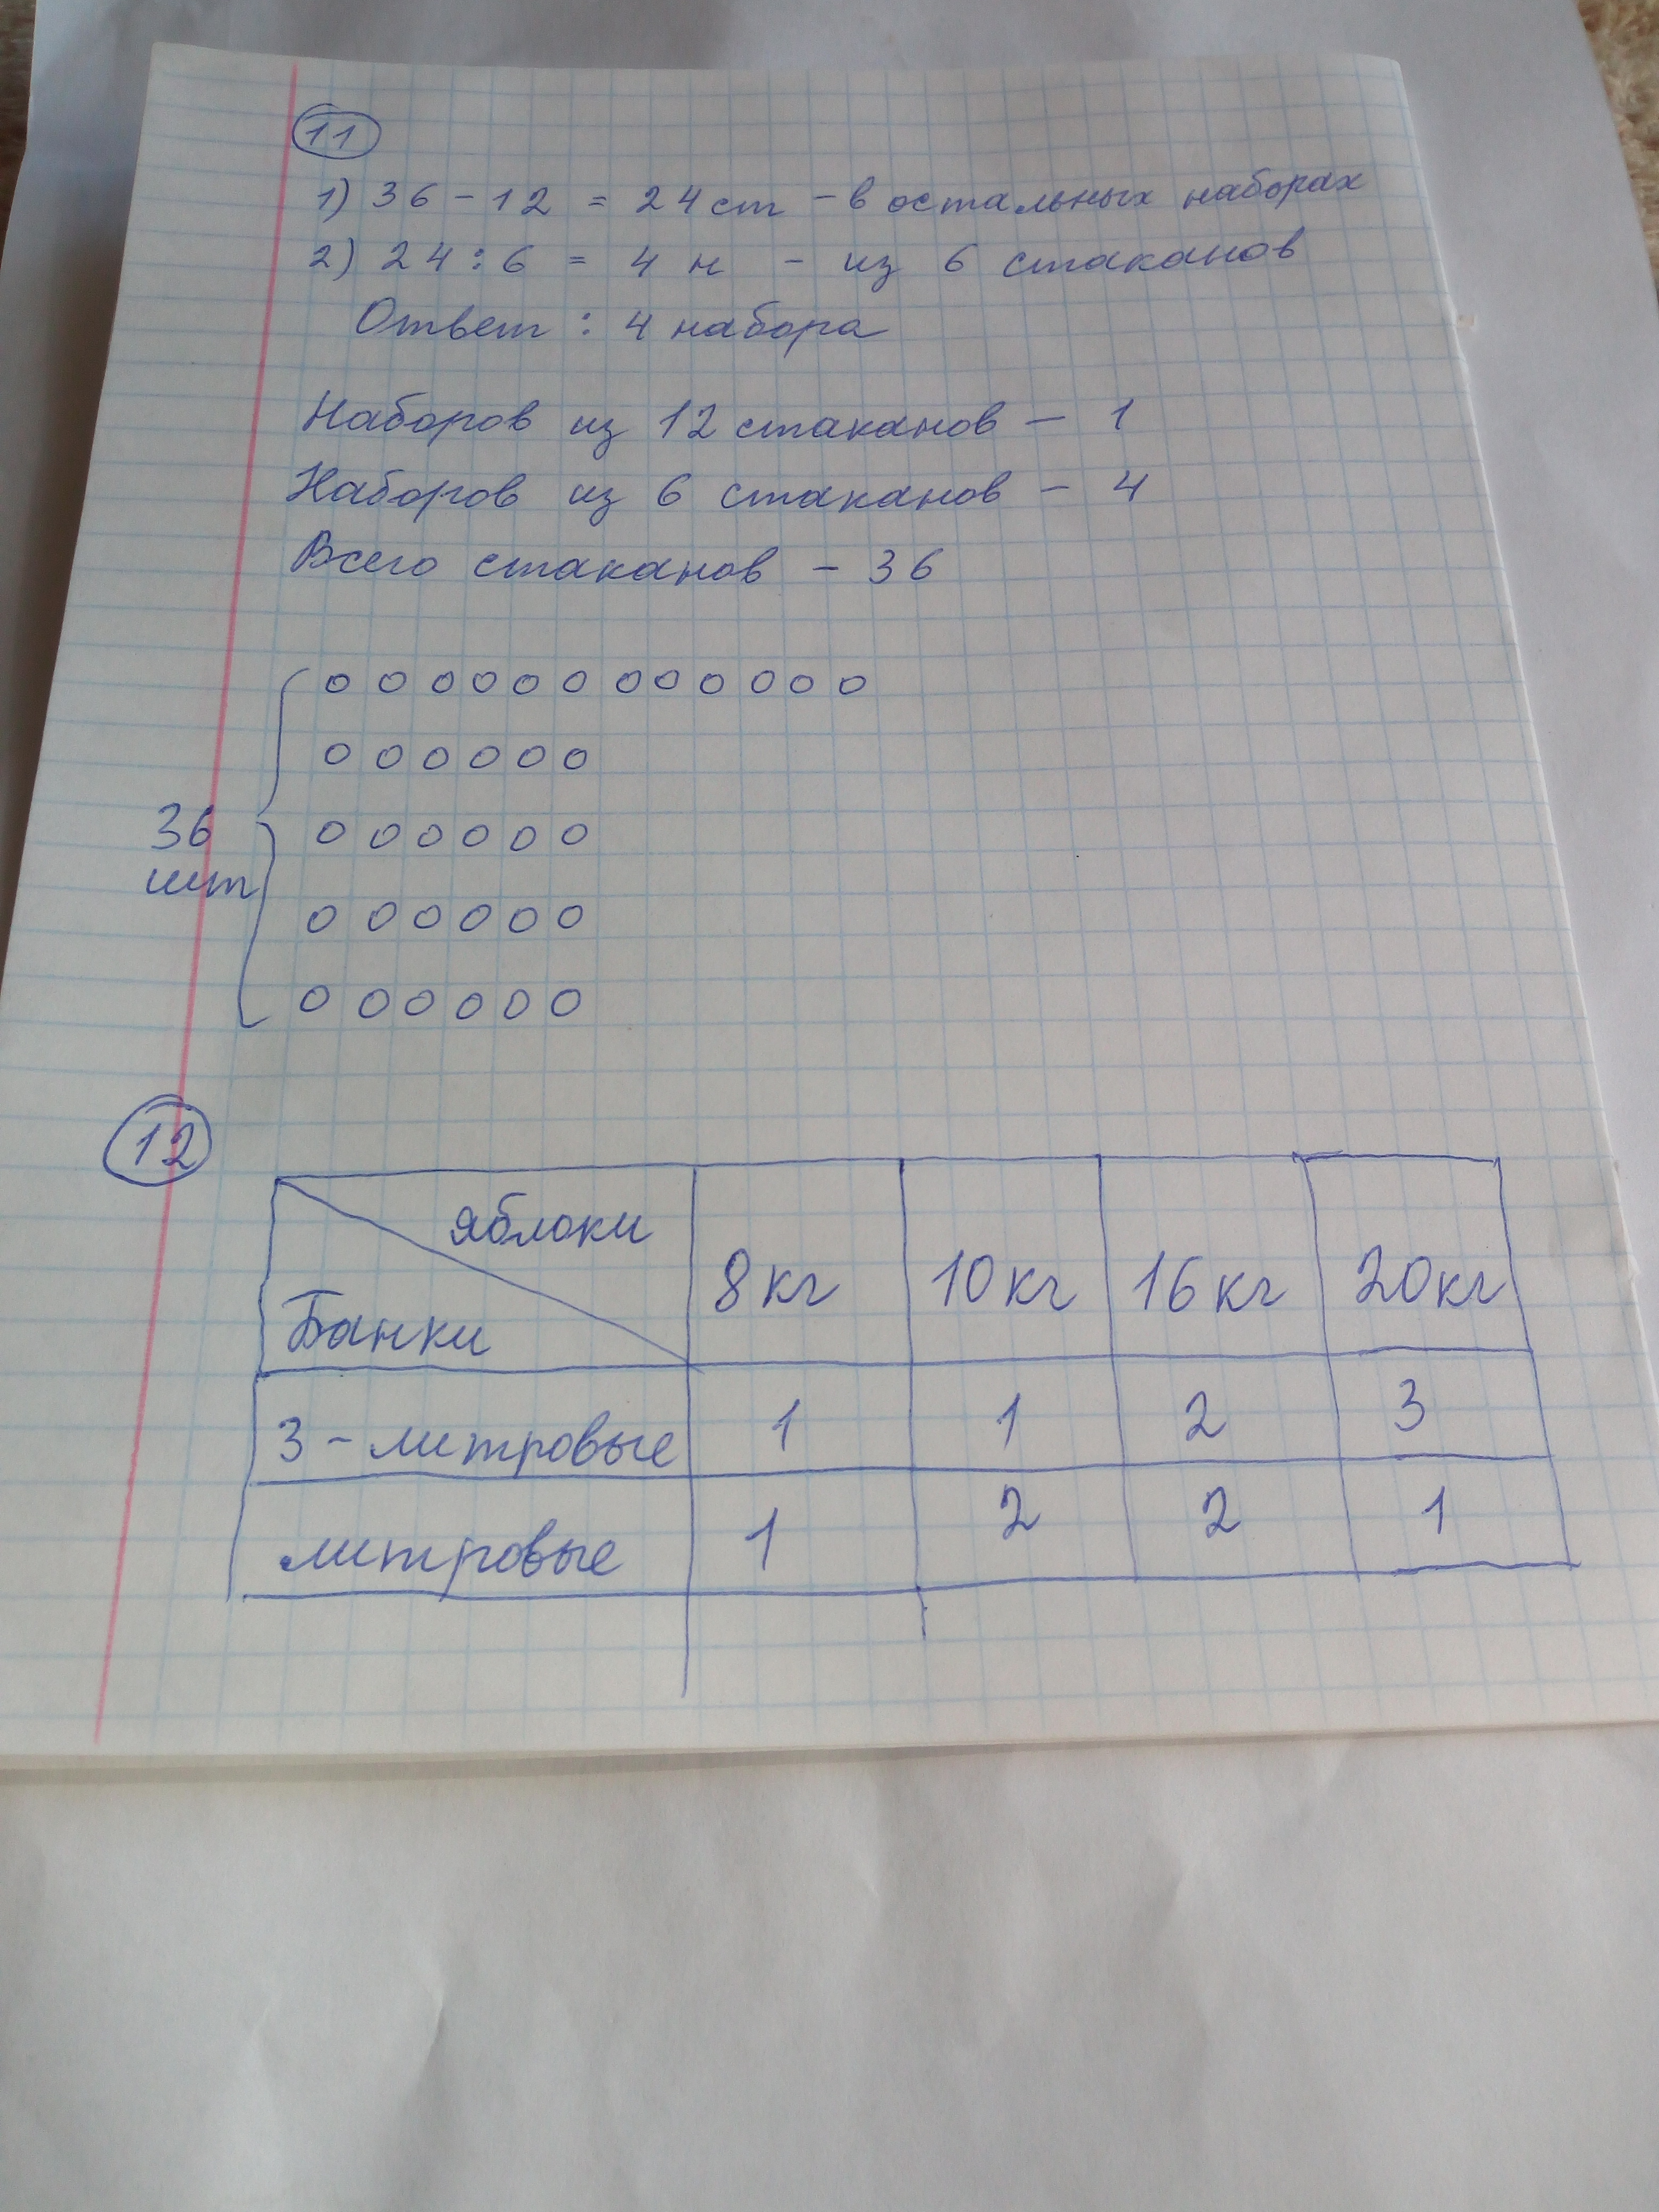 11
1) 36 - 12 = 24 ст - в остальных наборах
2) 24 : 6 = 4 н - из 6 стаканов
Ответ : 4 набора
Наборов из 12 стаканов - 1
Наборов из 6 стаканов - 4
Всего стаканов - 36
0 0 0 0 0 0 0 0 0 0 0 0
0 0 0 0 0 0
36 0 0 0 0 0 0
шт
0 0 0 0 0 0
0 0 0 0 0 0
12
яблоки
Банки 8 кг 10 кг 16 кг 20 кг
3 - литровые 1 1 2 3
литровые 1 2 2 1